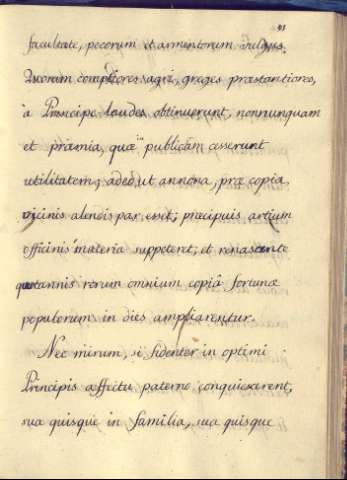 91
facultate, pecorum et armentorum
Quorum comptiores sagi, greges præstantiores,
à Principe laudes obtinuerunt, nonnunquam
et præmia, quæ in publicam cesserunt
utilitatem; adeo, ut annona, præ copia,
vicinis alendis par esset; præcipuis artium
officinis materia suppetent; et renascente
quotannis rerum omnium copiâ fortunæ
populorum in dies ampliarentur.
Nec mirum, si fidenter in optimi
Principis affectu paterno conquiescerent,
sua quisque in familia, sua quisque